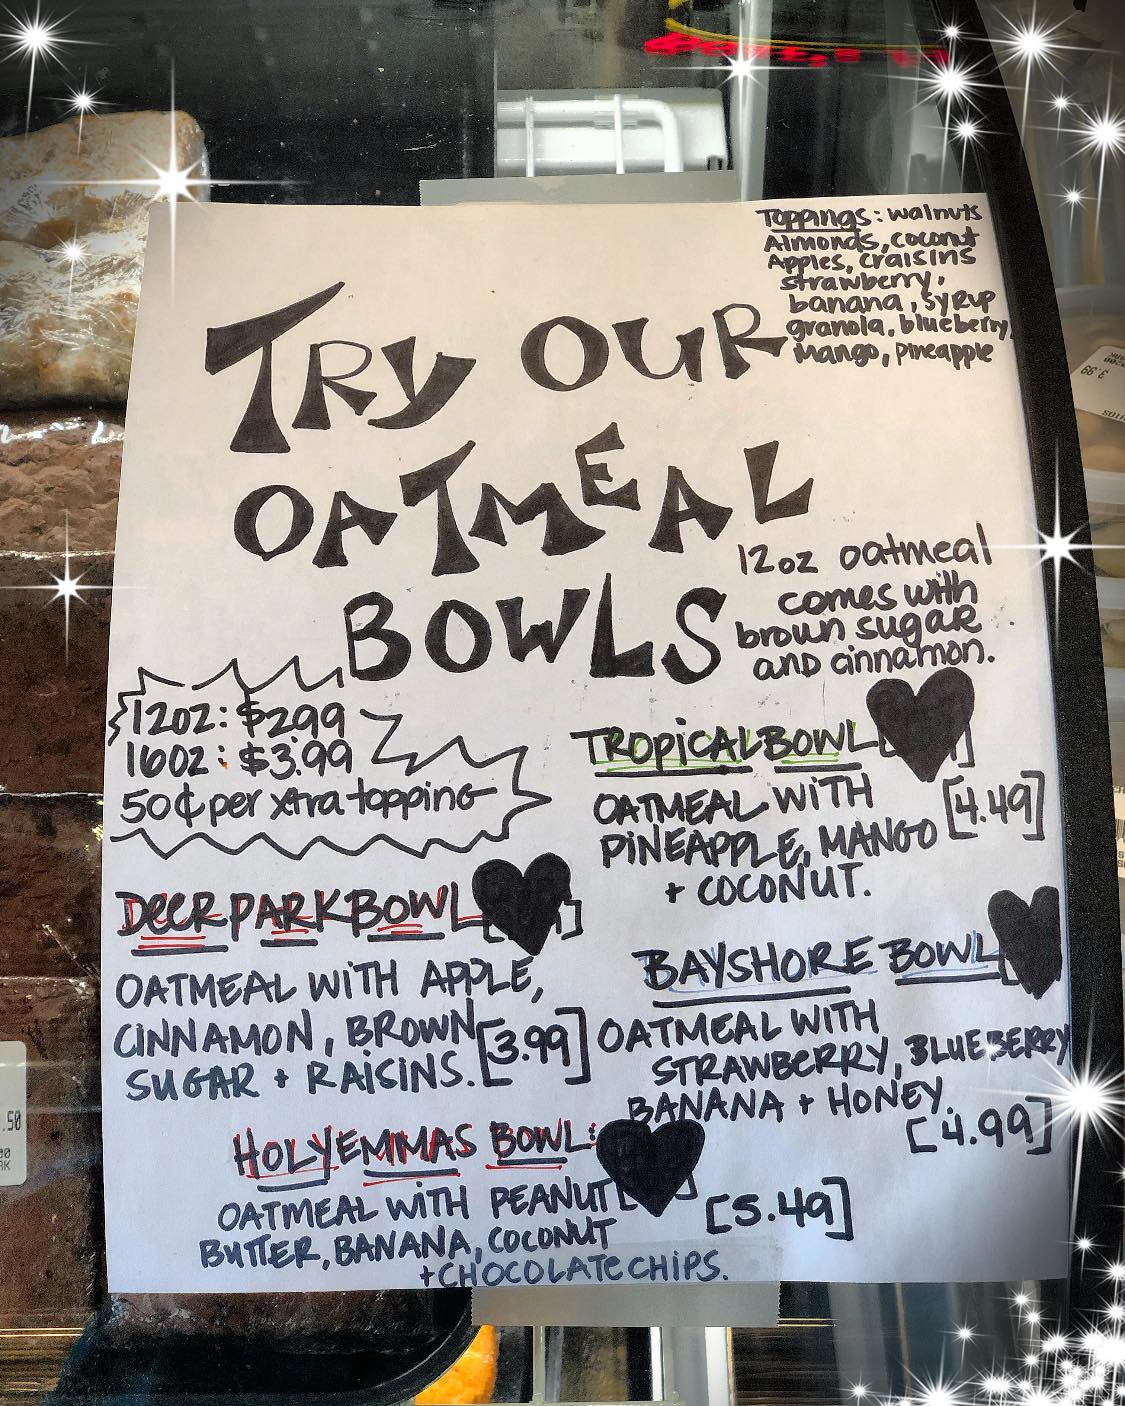 Toppings: walnuts
Almonds, coconut
Apples, craisins
strawberry,
banana, syrup
granola, blueberry,
Mango, pineapple
TRY OUR
OATMEAL
BOWLS
12oz oatmeal
comes with
brown sugar
and cinnamon.
12oz: $2.99
16oz: $3.99
50¢ per xtra topping
TROPICAL BOWL
OATMEAL WITH
PINEAPPLE, MANGO
+ COCONUT.
[4.49]
DEER PARK BOWL
OATMEAL WITH APPLE,
CINNAMON, BROWN
SUGAR + RAISINS.
[3.99]
BAYSHORE BOWL
OATMEAL WITH
STRAWBERRY, BLUEBERRY
BANANA + HONEY.
[4.99]
HOLYEMMAS BOWL:
OATMEAL WITH PEANUT
BUTTER, BANANA, COCONUT
+ CHOCOLATE CHIPS.
[5.49]
3.99
.50